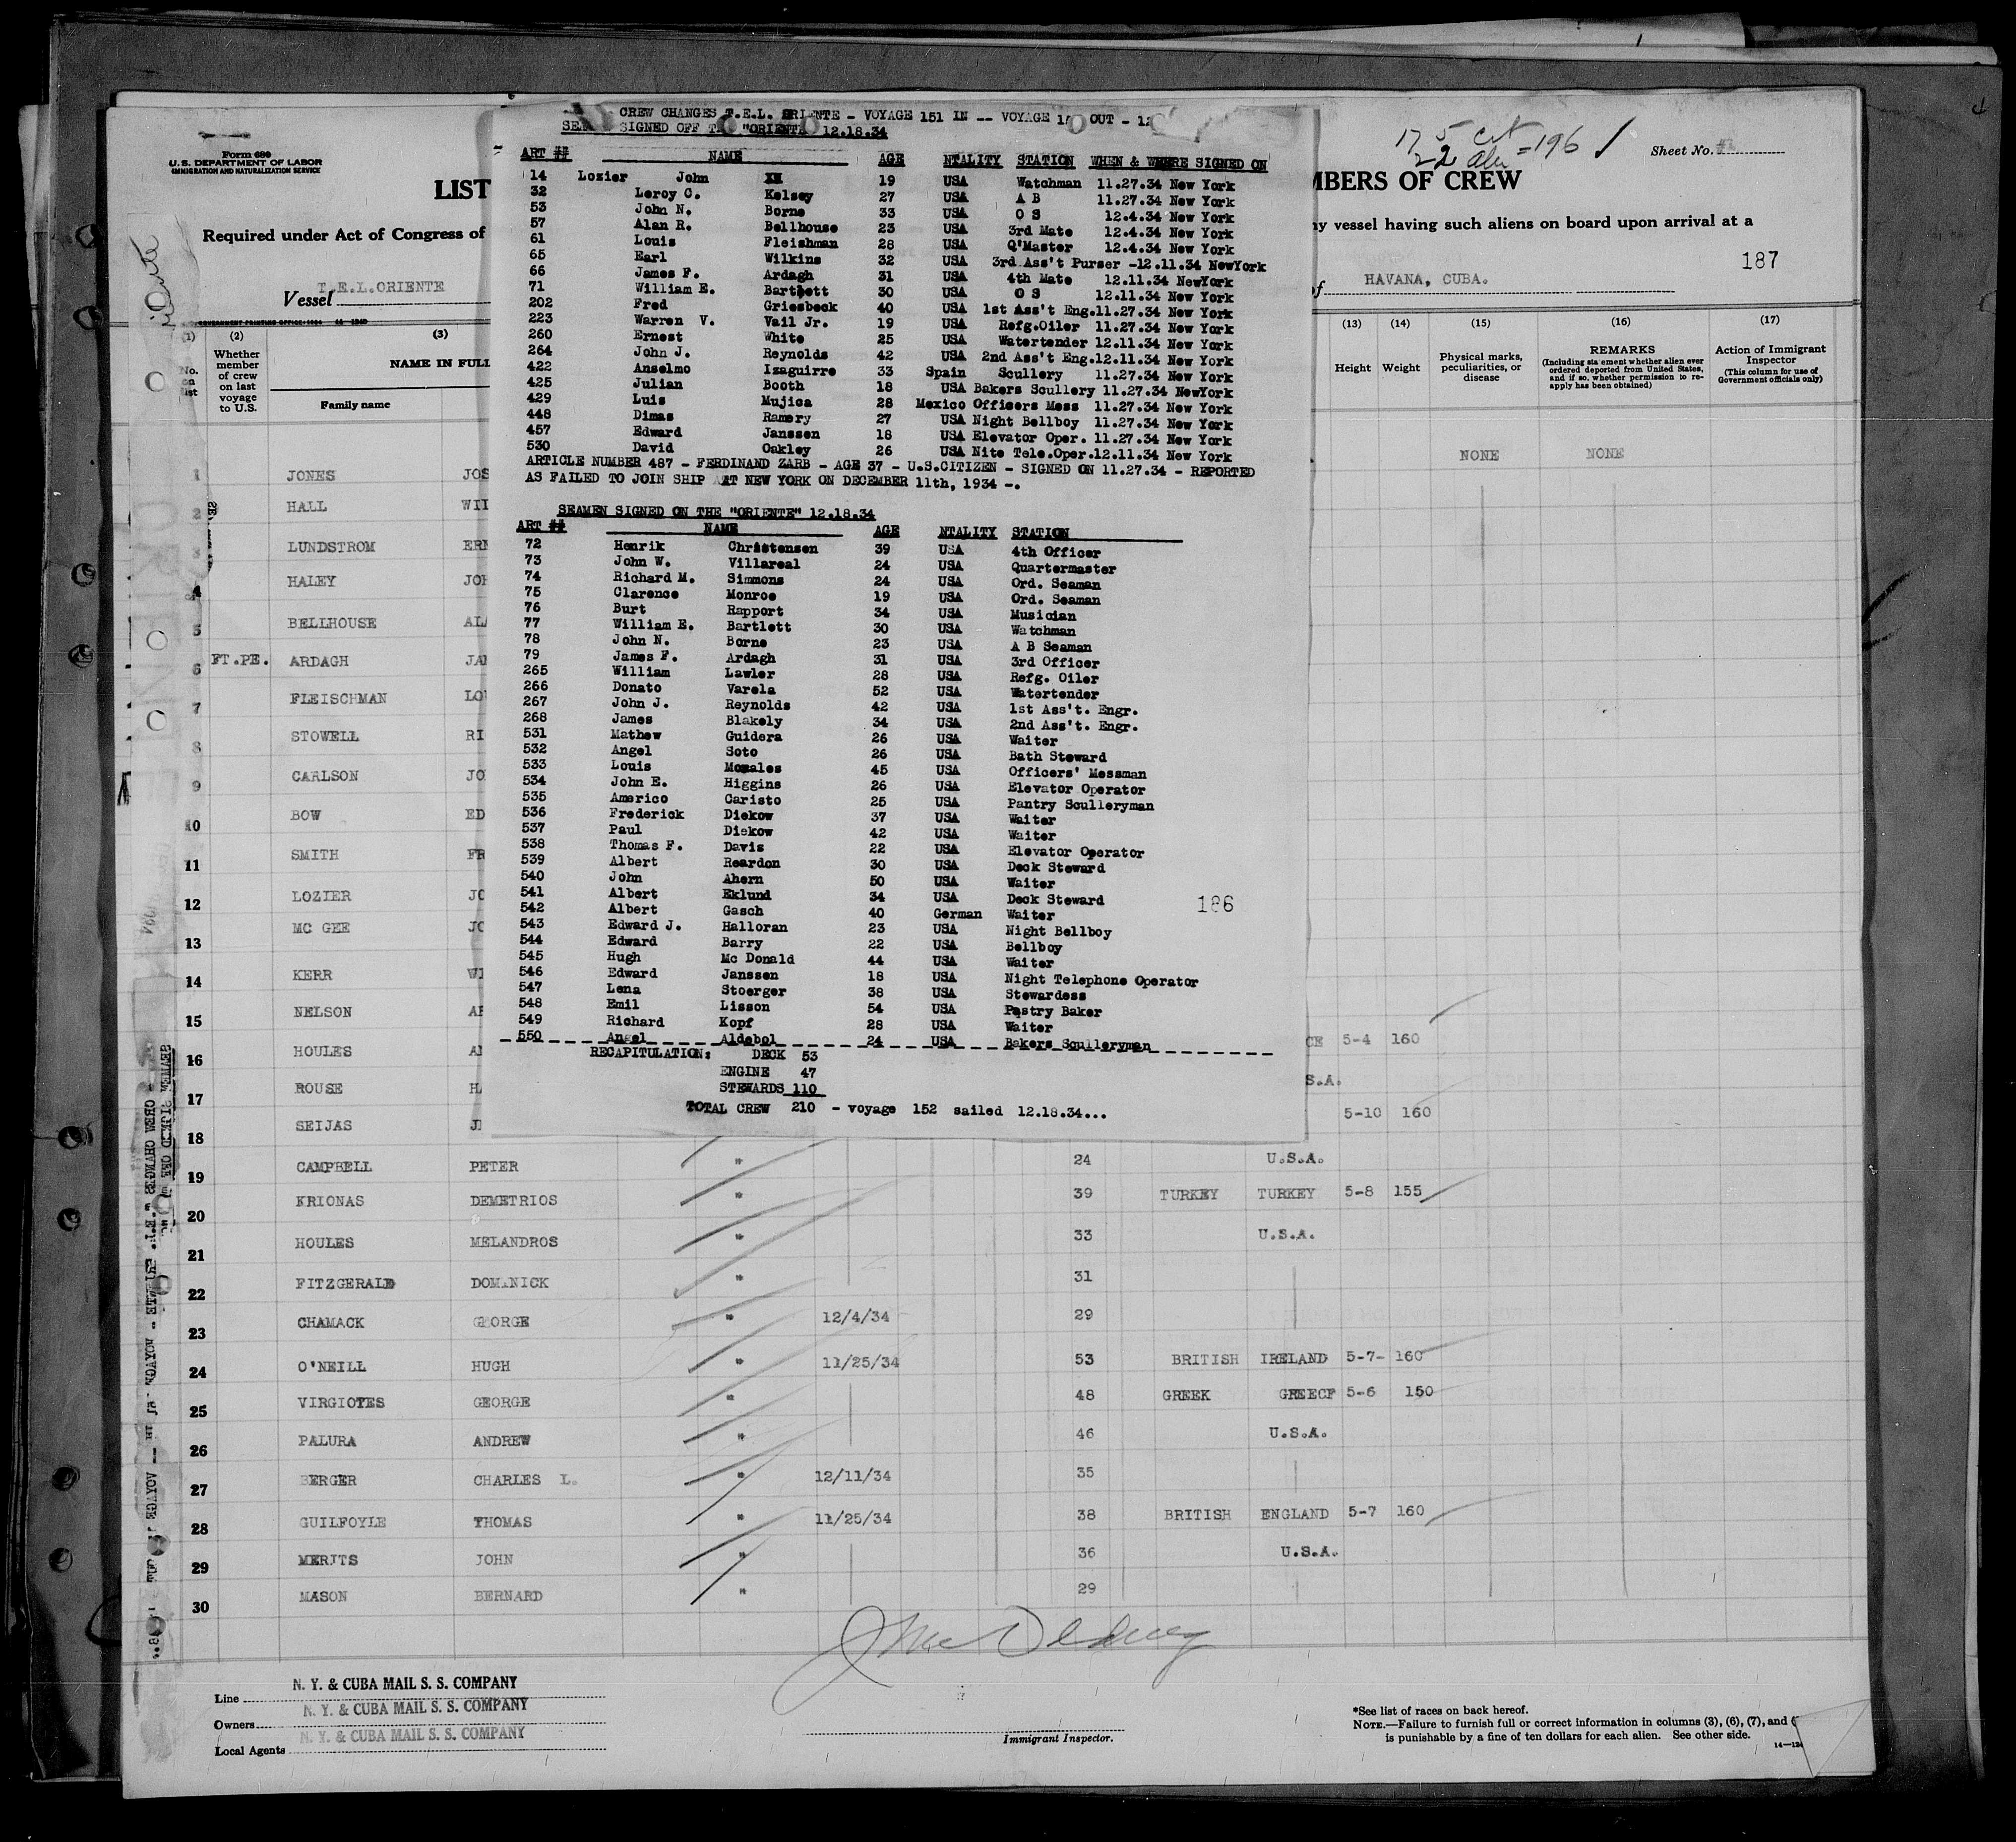 Form 680
U.S. DEPARTMENT OF LABOR
IMMIGRATION AND NATURALIZATION SERVICE
LIST
MBERS OF CREW
Sheet No.
17 5
22 = 196
Required under Act of Congress of
ny vessel having such aliens on board upon arrival at a
187
Vessel T.E.L.ORIENTE
of HAVANA, CUBA.
CREW CHANGES T.E.L. ORIENTE - VOYAGE 151 IN -- VOYAGE OUT -
SIGNED OFF "ORIENTE" 12.18.34
ART ## NAME AGE NTALITY STATION WHEN & WHERE SIGNED ON
14 Lozier John 19 USA Watchman 11.27.34 New York
32 Leroy C. Kelsey 27 USA A B 11.27.34 New York
53 John N. Borne 33 USA O S 12.4.34 New York
57 Alan R. Bellhouse 23 USA 3rd Mate 12.4.34 New York
61 Louis Fleishman 28 USA Q'Master 12.4.34 New York
65 Earl Wilkins 32 USA 3rd Ass't Purser -12.11.34 NewYork
66 James F. Ardagh 31 USA 4th Mate 12.11.34 NewYork
71 William E. Bartlett 30 USA O S 12.11.34 New York
202 Fred Griesbeck 40 USA 1st Ass't Eng.11.27.34 New York
223 Warren V. Vail Jr. 19 USA Refg.Oiler 11.27.34 New York
260 Ernest White 25 USA Watertender 12.11.34 New York
264 John J. Reynolds 42 USA 2nd Ass't Eng.12.11.34 New York
422 Anselmo Izaguirre 33 Spain Scullery 11.27.34 New York
425 Julian Booth 18 USA Bakers Scullery 11.27.34 NewYork
429 Luis Mujica 28 Mexico Officers Mess 11.27.34 New York
448 Dimas Ramery 27 USA Night Bellboy 11.27.34 New York
457 Edward Janssen 18 USA Elevator Oper. 11.27.34 New York
530 David Oakley 26 USA Nite Tele.Oper.12.11.34 New York
ARTICLE NUMBER 487 - FERDINAND ZARB - AGE 37 - U.S.CITIZEN - SIGNED ON 11.27.34 - REPORTED
AS FAILED TO JOIN SHIP AT NEW YORK ON DECEMBER 11th, 1934 -.
SEAMEN SIGNED ON THE "ORIENTE" 12.18.34
ART ## NAME AGE NTALITY STATION
72 Henrik Christensen 39 USA 4th Officer
73 John W. Villareal 24 USA Quartermaster
74 Richard M. Simmons 24 USA Ord. Seaman
75 Clarence Monroe 19 USA Ord. Seaman
76 Burt Rapport 34 USA Musician
77 William E. Bartlett 30 USA Watchman
78 John N. Borne 23 USA A B Seaman
79 James F. Ardagh 31 USA 3rd Officer
265 William Lawler 28 USA Refg. Oiler
266 Donato Varela 52 USA Watertender
267 John J. Reynolds 42 USA 1st Ass't. Engr.
268 James Blakely 34 USA 2nd Ass't. Engr.
531 Mathew Guidera 26 USA Waiter
532 Angel Soto 26 USA Bath Steward
533 Louis Morales 45 USA Officers' Messman
534 John E. Higgins 26 USA Elevator Operator
535 Americo Caristo 25 USA Pantry Sculleryman
536 Frederick Diekow 37 USA Waiter
537 Paul Diekow 42 USA Waiter
538 Thomas F. Davis 22 USA Elevator Operator
539 Albert Reardon 30 USA Deck Steward
540 John Ahern 50 USA Waiter
541 Albert Eklund 34 USA Deck Steward
542 Albert Gasch 40 German Waiter
543 Edward J. Halloran 23 USA Night Bellboy
544 Edward Barry 22 USA Bellboy
545 Hugh Mc Donald 44 USA Waiter
546 Edward Janssen 18 USA Night Telephone Operator
547 Lena Stoerger 38 USA Stewardess
548 Emil Lisson 54 USA Pastry Baker
549 Richard Kopf 28 USA Waiter
550 Angel Aldebol 24 USA Bakers Sculleryman
186
RECAPITULATION: DECK 53
ENGINE 47
STEWARDS 110
TOTAL CREW 210 - voyage 152 sailed 12.18.34...
(1) (2) (3) (13) (14) (15) (16) (17)
No. on list
Whether member of crew on last voyage to U.S.
NAME IN FULL
Family name
Height Weight
Physical marks, peculiarities, or disease
REMARKS
(Including statement whether alien ever ordered deported from United States, and if so, whether permission to reapply has been obtained)
Action of Immigrant Inspector
(This column for use of Government officials only)
1 JONES JOS NONE NONE
2 HALL WIL
3 LUNDSTROM ERN
4 HALEY JOH
5 BELLHOUSE ALA
6 FT.PE. ARDAGH JAM
7 FLEISCHMAN LOU
8 STOWELL RI
9 CARLSON JO
10 BOW ED
11 SMITH FR
12 LOZIER JO
13 MC GEE JO
14 KERR WI
15 NELSON AR
16 HOULES CE 5-4 160
17 ROUSE S.A.
18 SEIJAS 5-10 160
19 CAMPBELL PETER " 24 U.S.A.
20 KRIONAS DEMETRIOS " 39 TURKEY TURKEY 5-8 155
21 HOULES MELANDROS " 33 U.S.A.
22 FITZGERALD DOMINICK " 31
23 CHAMACK GEORGE " 12/4/34 29
24 O'NEILL HUGH " 11/25/34 53 BRITISH IRELAND 5-7- 160
25 VIRGIOTES GEORGE " 48 GREEK GREECE 5-6 150
26 PALURA ANDREW " 46 U.S.A.
27 BERGER CHARLES L. " 12/11/34 35
28 GUILFOYLE THOMAS " 11/25/34 38 BRITISH ENGLAND 5-7 160
29 MERJTS JOHN " 36 U.S.A.
30 MASON BERNARD " 29
Line N. Y. & CUBA MAIL S. S. COMPANY
Owners N. Y. & CUBA MAIL S. S. COMPANY
Local Agents N. Y. & CUBA MAIL S. S. COMPANY
Immigrant Inspector.
*See list of races on back hereof.
NOTE.—Failure to furnish full or correct information in columns (3), (6), (7), and (
is punishable by a fine of ten dollars for each alien. See other side.